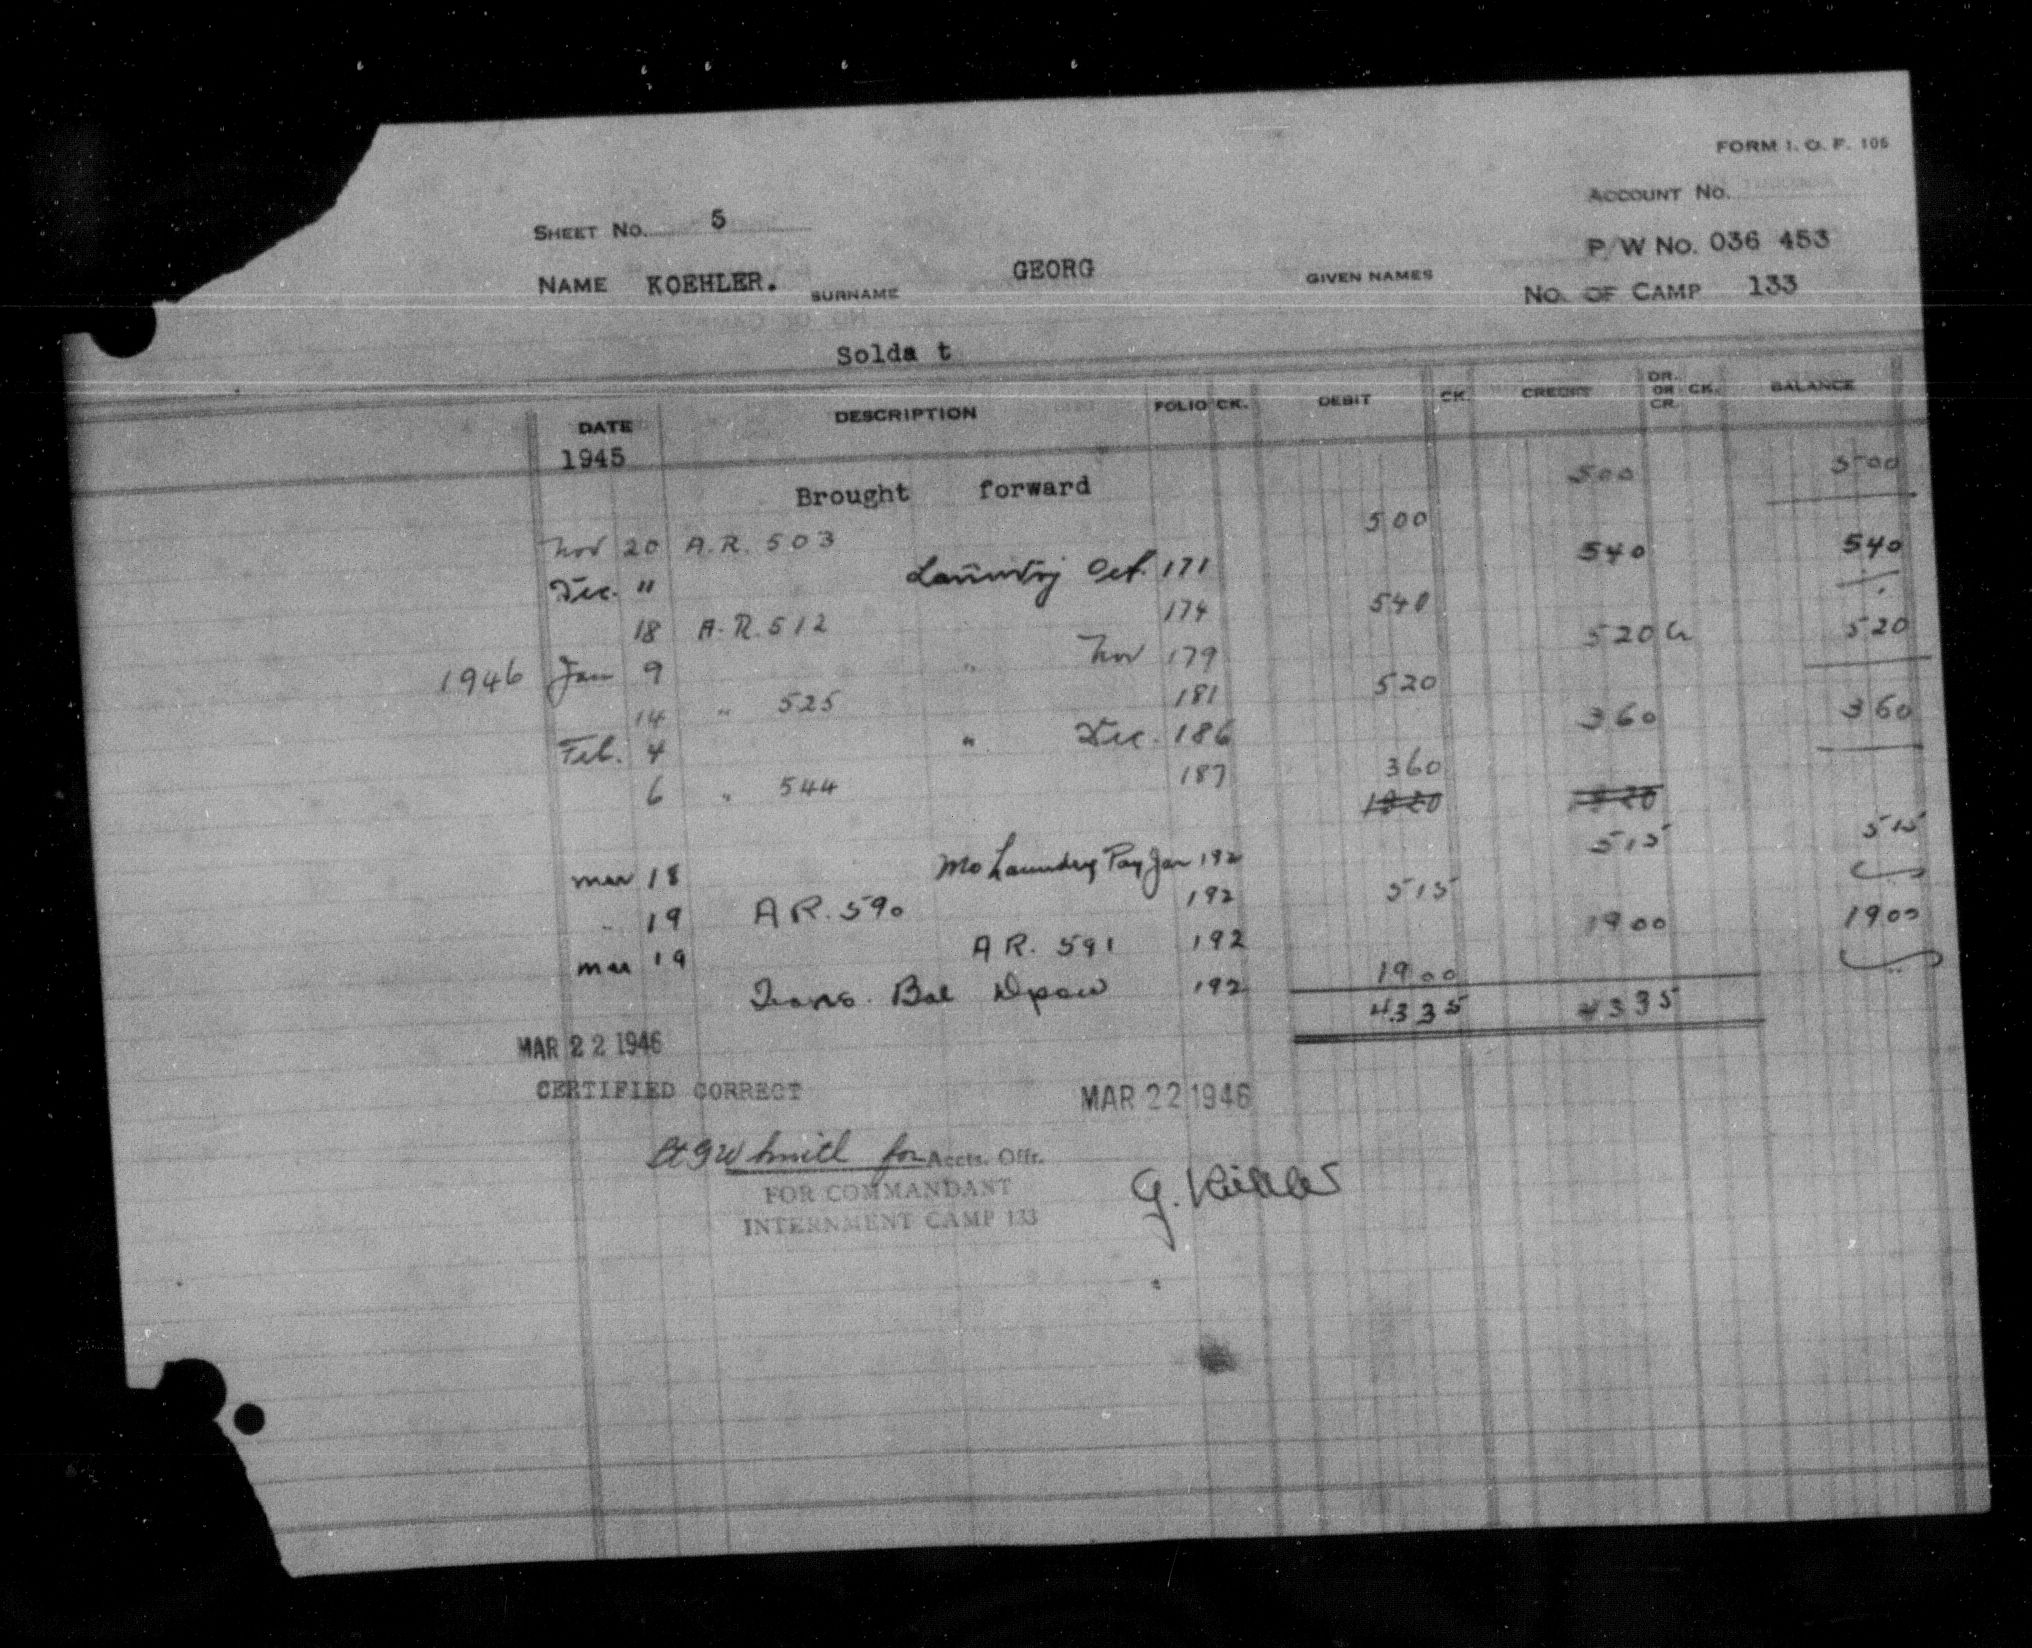 FORM I. O. F. 105
ACCOUNT No.
SHEET No. 5
P/W No. 036 453
NAME KOEHLER. SURNAME GEORG GIVEN NAMES
No. OF CAMP 133
Solda t
DATE DESCRIPTION FOLIO CK. DEBIT CK. CREDIT DR. OR CR. CK. BALANCE
1945
Brought forward 500 500
Nov 20 A.R. 503 500
Dec. " Laundry Oct. 171 540 540
18 A.R. 512 174 540
1946 Jan 9 " Nov 179 520 Cr 520
14 " 525 181 520
Feb. 4 " Dec. 186 360 360
6 " 544 187 360
1820 1820
Mar 18 Mo Laundry Pay Jan 192 515 515
" 19 A R. 590 192 515
Mar 19 A R. 591 192 1900 1900
Trans. Bal 192 1900
4335 4335
MAR 22 1946
CERTIFIED CORRECT
MAR 22 1946
Lt G W Smith for Accts. Offr.
FOR COMMANDANT
INTERNMENT CAMP 133
G. Köhler